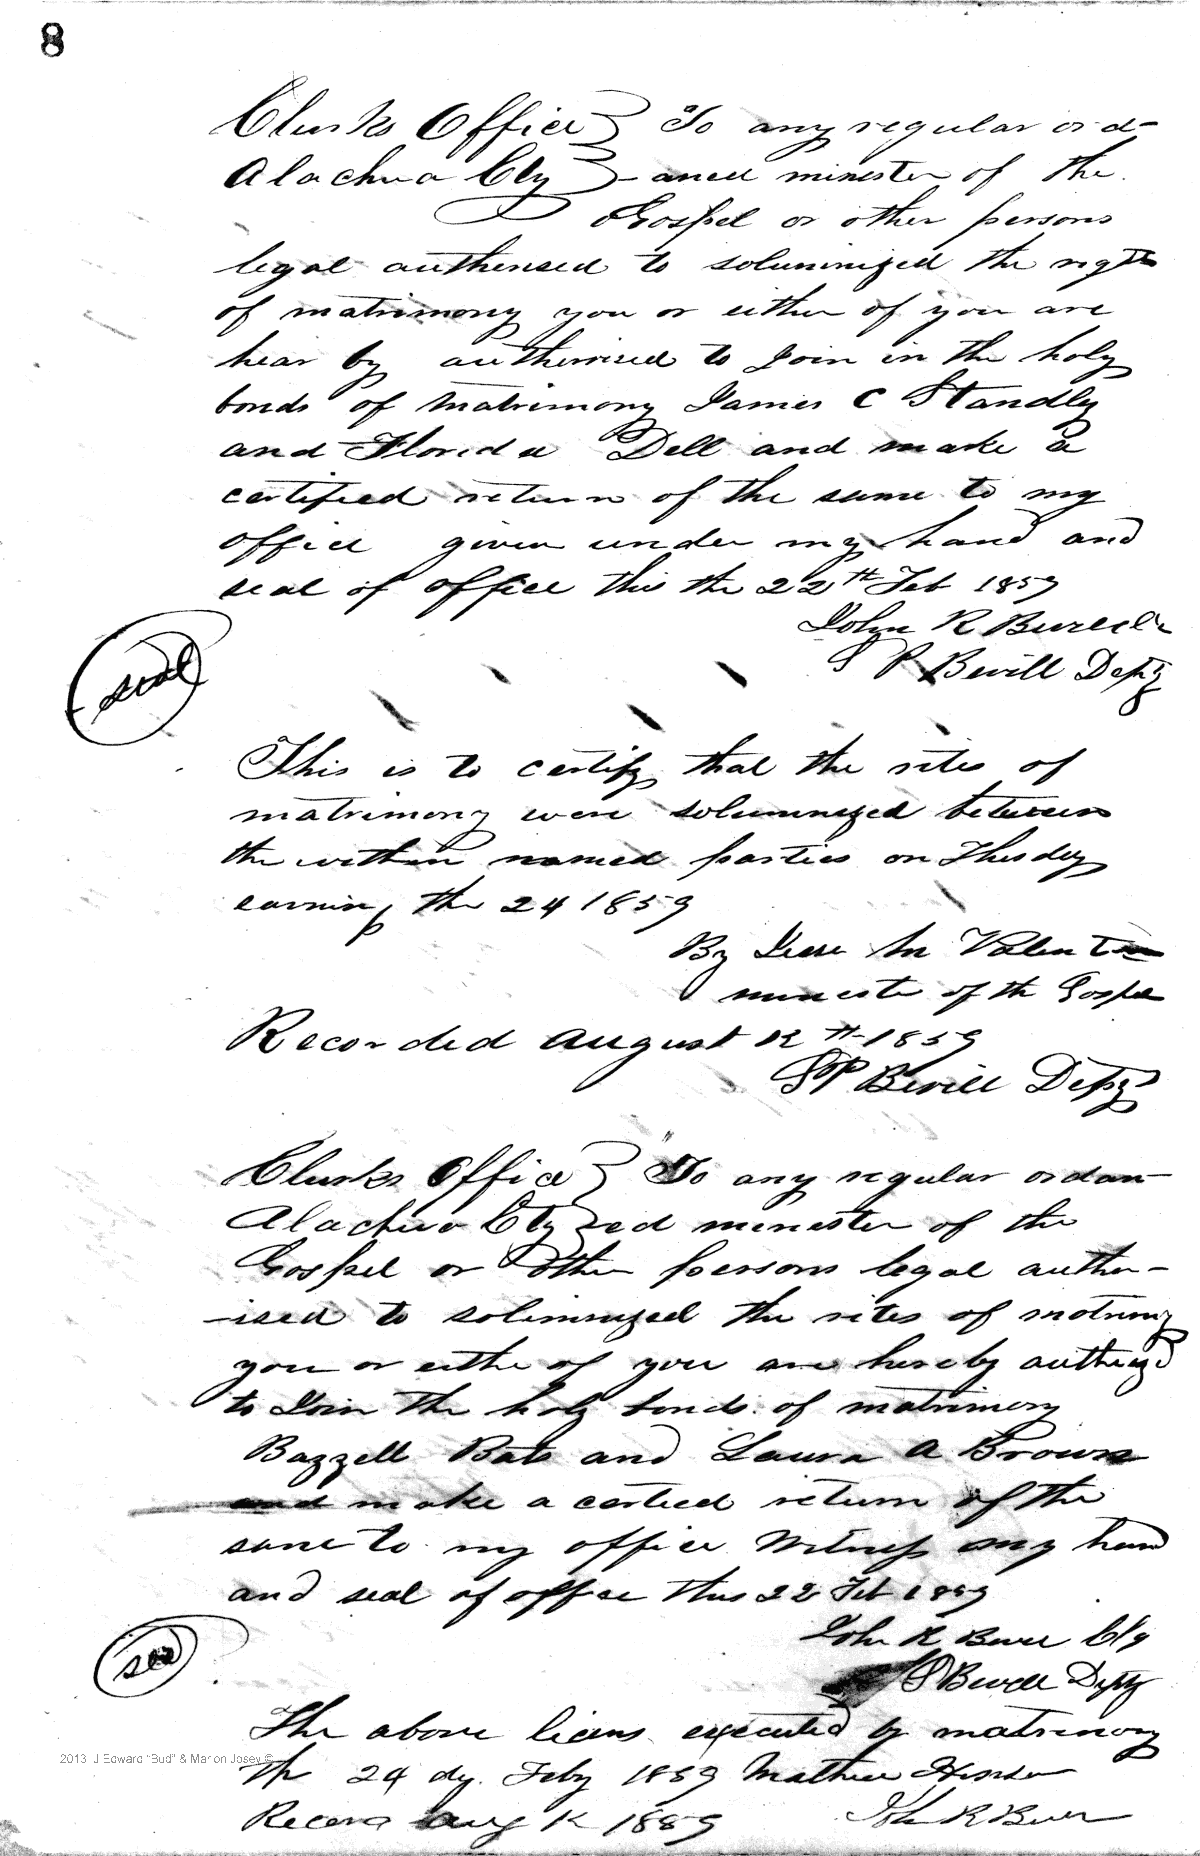 8
Clurks Office } To any regular ord-
Alachua Cty } -aned minester of the
Gospel or other persons
legal authensed to soluminized the rights
of matrimony you or either of you are
hear by authorised to Join in the holy
bonds of matrimony James C Standly
and Florida Dell and make a
certified return of the same to my
office given under my hand and
seal of office this the 22th Feb 1859
John R
S P Bevill Depty
seal
This is to certify that the rites of
matrimony were soluminized between
the within named parties on Thusday
the 24 1859
By M
minester of the Gospel
Recorded August 12th 1859
S P Bevill Depty
Clurks Office } To any regular ordan-
Alachua Cty } ed minester of the
Gospel or other persons legal author-
-ised to soliminized the rites of
you or either of you are hereby
to Join the holy bonds of matrimony
Bazzell Bats and Laura A Brown
and make a return of the
same to my office Witness my hand
and seal of office this 22 Feb 1859
John R
S Bevill Depty
The above executed by matrimony
24 dy Feby 1859
Aug 12 1859 John R
2013 J Edward "Bud" & Marion Josey ©